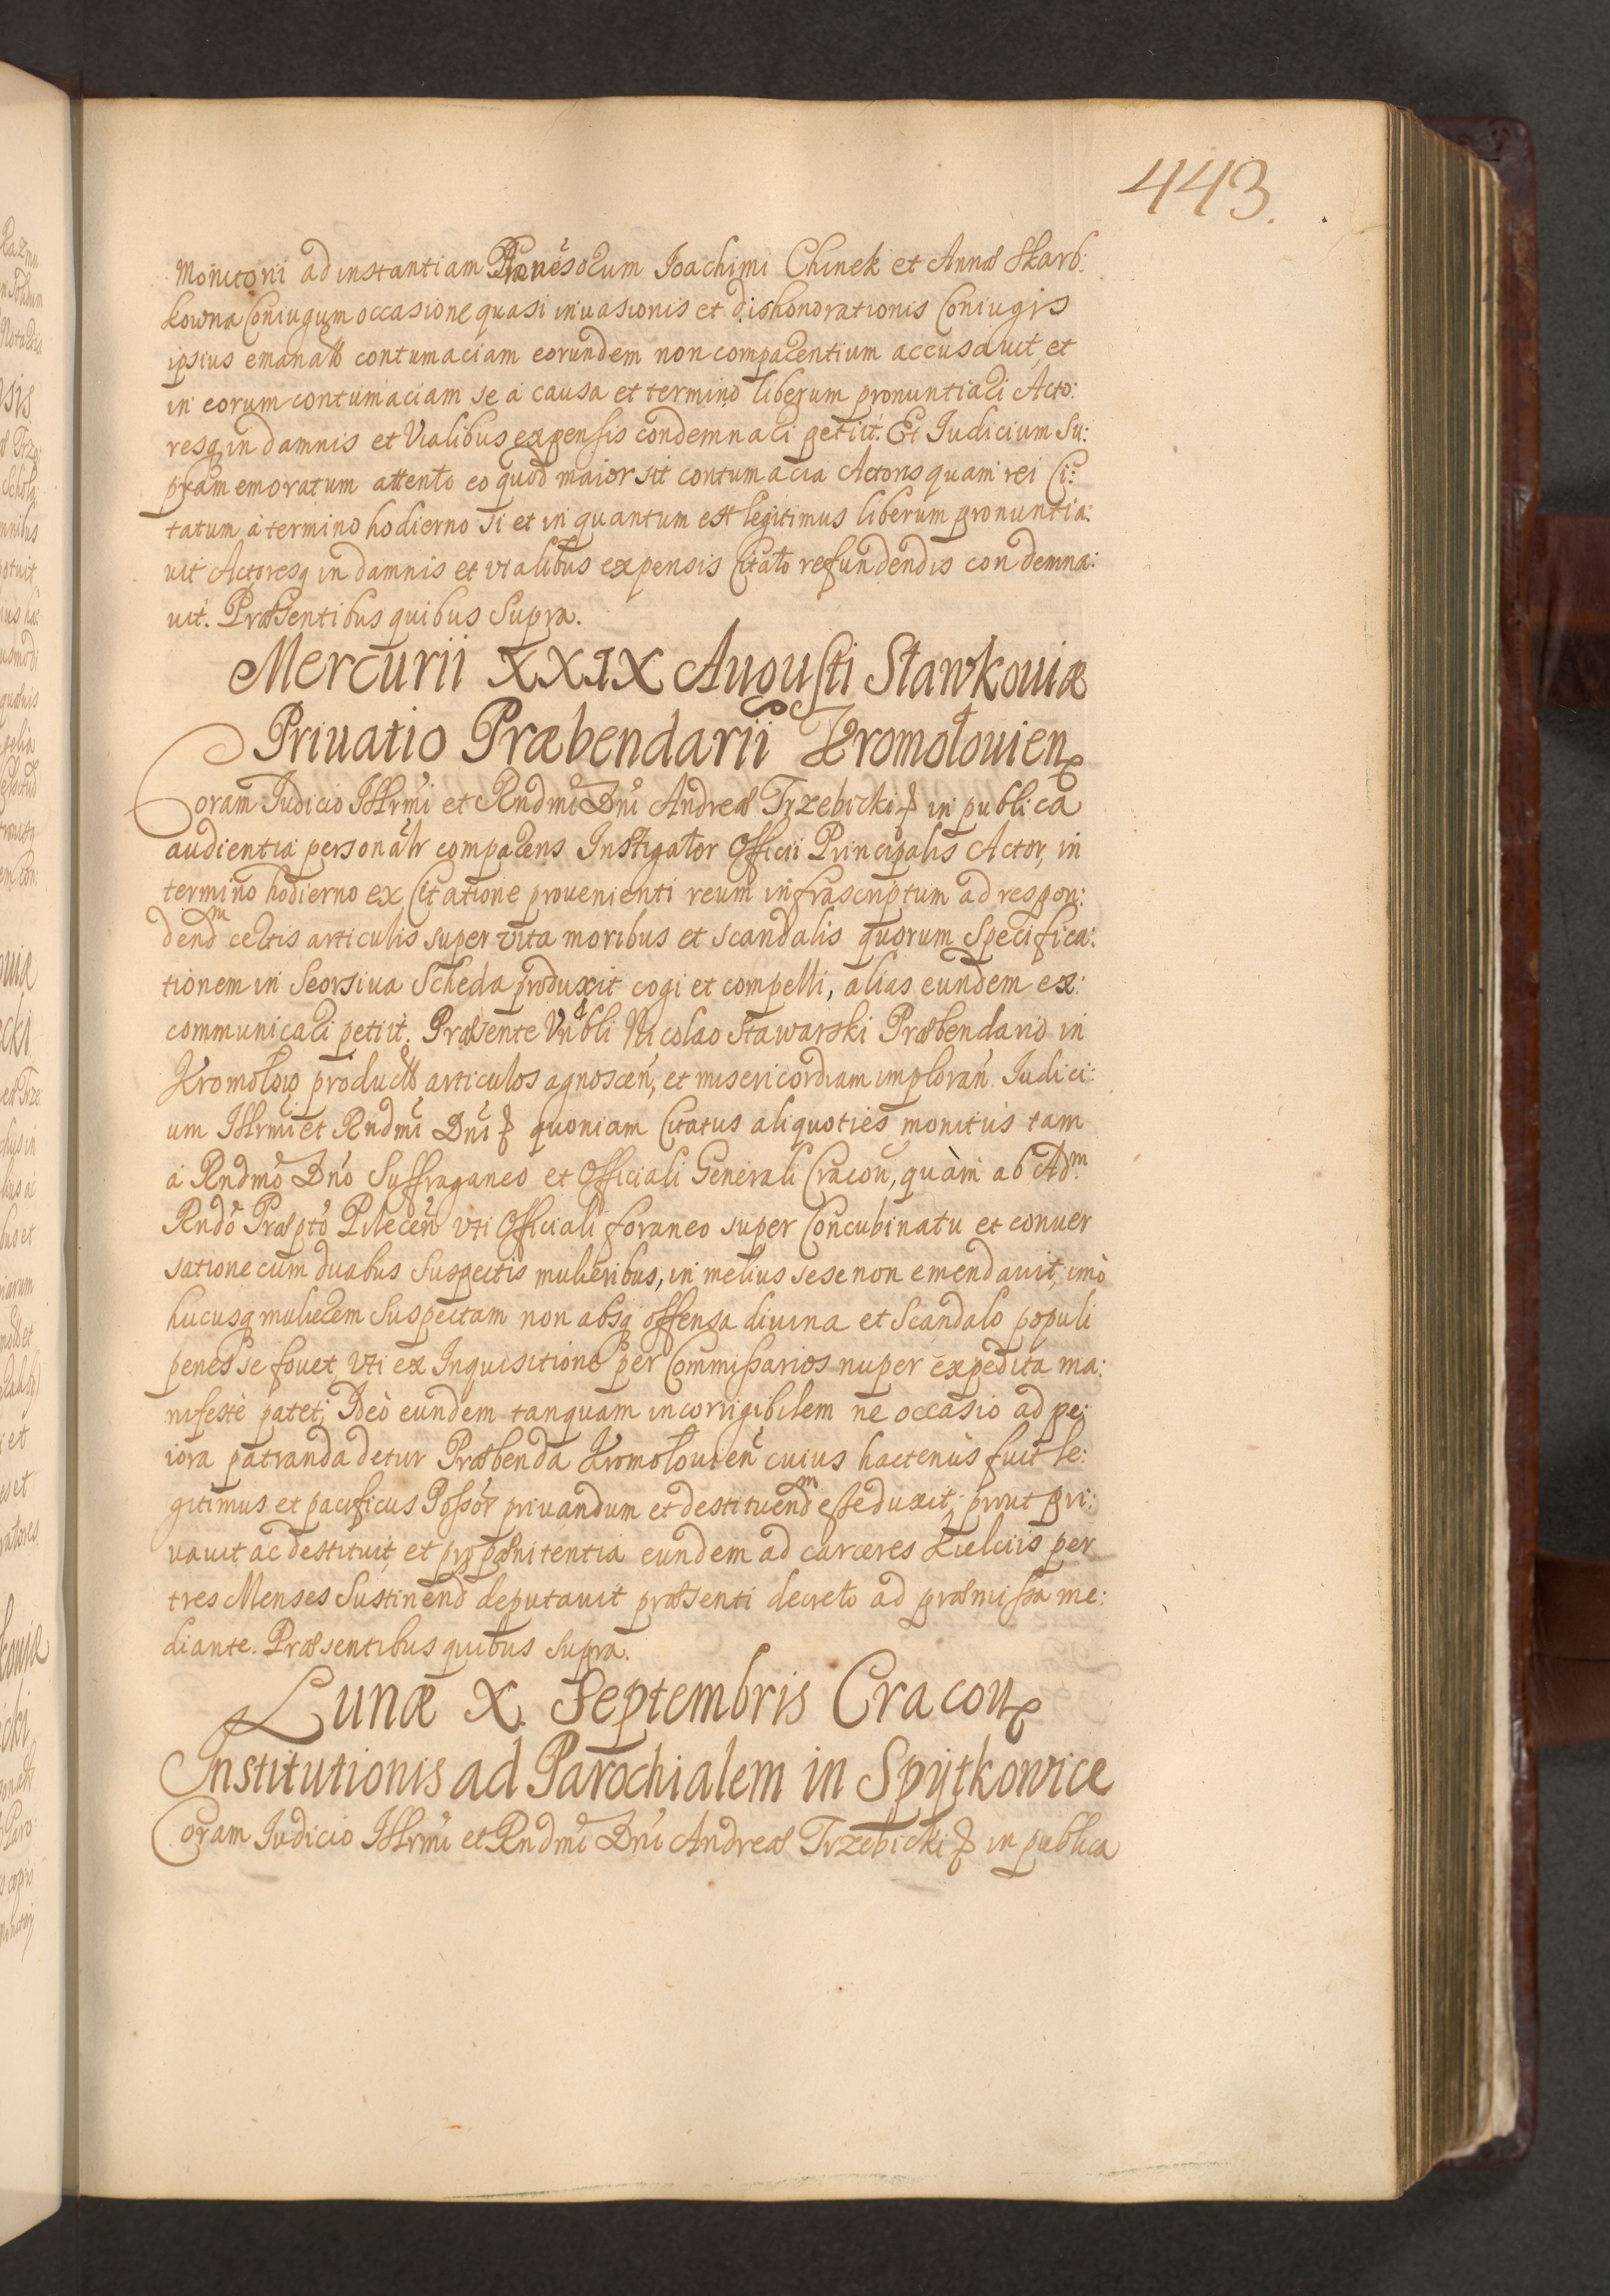 443.
Monitorii ad instantiam Joachimi Chinek et Annæ Skarb:
kowna Coniugum occasione quasi inuasionis et dishonorationis Coniugis
ipsius emanato contumaciam eorundem non comparentium accusauit et
in eorum contumaciam se a causa et termino liberum pronuntiari Acto:
resq in damnis et Vialibus expensis condemnari petiit. Et Iudicium Su:
pramemoratum attento eo quod maior sit contumacia Actoris quam rei Ci:
tatum à termino hodierno si et in quantum est legitimus liberum pronuntia:
uit Actoresq in damnis et vialibus expensis Citato refundendis condemna:
uit. Præsentibus quibus Supra.
Mercurii XXIX Augusti Sławkouiæ
Priuatio Præbendarii Kromołouien
Coram Iudicio Illrmi et Rndmi Dni Andreæ Trzebicki in publica
audientia personalr comparens Instigator Officii Principalis Actor, in
termino hodierno ex Citatione prouenienti reum infrascriptum ad respon:
dendm certis articulis super vita moribus et scandalis quorum Specifica:
tionem in Seorsiua Scheda produxit cogi et compelli, alias eundem ex:
communicari petiit. Præsente Vnbli Nicolao Stawarski Præbendario in
Kromołow productos articulos agnoscen, et misericordiam imploran. Iudici:
um Illrmi et Rndmi Dni quoniam Citatus aliquoties monitus tam
a Rndmo Dno Suffraganeo et Officiali Generali Cracou, quàm ab Adm
Rndo Præpto Pilecen vti Officiali foraneo super Concubinatu et conuer
satione cum duabus Suspectis mulieribus, in melius sese non emendauit, imò
hucusq mulierem Suspectam non absq offensa diuina et Scandalo populi
penes se fouet vti ex Inquisitione per Commissarios nuper expedita ma:
nifestè patet; Ideò eundem tanquam incorrigibilem ne occasio ad pe:
iora patranda detur Præbenda Kromołouien cuius hactenus fuit le:
gitimus et pacificus Possor priuandum et destituendm esse duxit, prout pri:
uauit ac destituit, et pro pænitentia eundem ad carceres Kielciis per
tres Menses Sustinend deputauit præsenti decreto ad præmissa me:
diante. Præsentibus quibus Supra.
Lunæ X. Septembris Cracou
Institutionis ad Parochialem in Spÿtkowice
Coram Iudicio Illrmi et Rndmi Dni Andreæ Trzebicki in publica